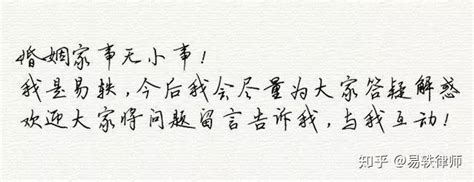 婚姻家事无小事！
我是易轶，今后我会尽量为大家答疑解惑
欢迎大家将问题留言告诉我，与我互动！
知乎 @易轶律师